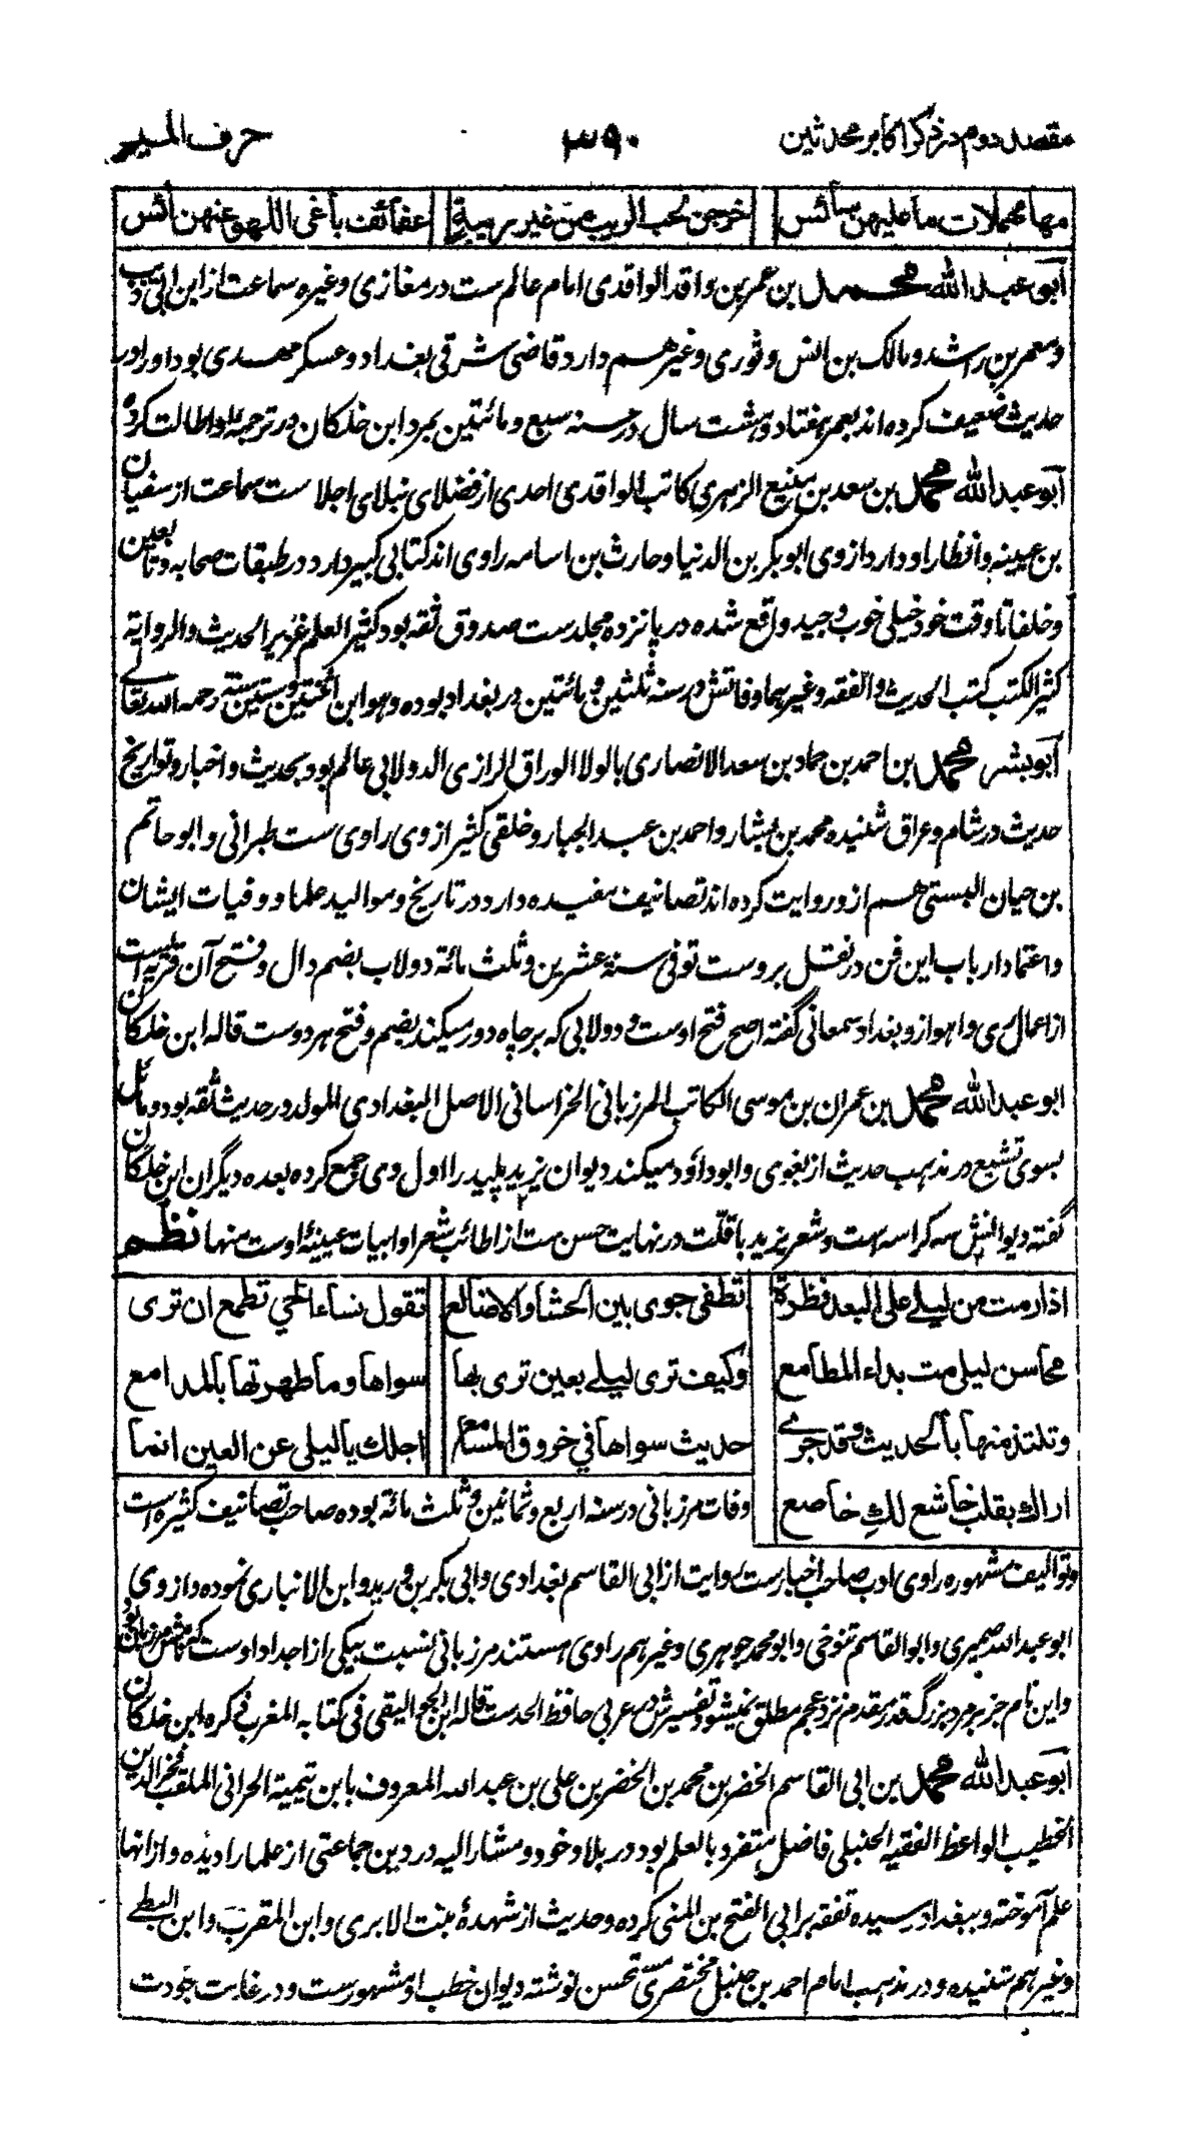 مقصد دوم در ذکر اکابر محدثین ۳۹۰ حرف المیم
مها مهملات ما علیهن سائس خرجن لحب الریب من غیر ریبة عفائف باغی اللهو عنهن آئس
آبو عبد الله محمد بن عمر بن واقد الواقدی امام عالم ست در مغازی و غیره سماعت از ابن ابی ذئب
و معمر بن راشد و مالک بن انس و ثوری و غیر هم دارد قاضی شرقی بغداد و عسکر مهدی بود او را در
حدیث ضعیف کرده اند بعمر هفتاد و هشت سال در سنه سبع و مائتین بمرد ابن خلکان در ترجمه او اطالت کرده
آبو عبد الله محمد بن سعد بن منیع الزهری کاتب الواقدی احدی از فضلای نبلای اجلا ست سماعت از سفیان
بن عیینه و انظار او دارد از وی ابو بکر بن الدنیا و حارث بن اسامه راوی اند کتابی کبیر دارد در طبقات صحابه و تابعین
و خلفا تا وقت خود خیلی خوب و جید واقع شده در پانزده مجلد ست صدوق ثقه بود کثیر العلم غزیر الحدیث و الروایة
کثیر الکتب کتب الحدیث و الفقه و غیرهما وفاتش در سنه ثلثین و مائتین در بغداد بوده و هو ابن اثنتین و ستین سنة رحمه الله تعالے
آبو بشر محمد بن احمد بن حماد بن سعد الانصاری بالولا الوراق الرازی الدولابی عالم بود بحدیث و اخبار و تواریخ
حدیث در شام و عراق شنیده محمد بن بشار و احمد بن عبد الجبار و خلقی کثیر از وی راوی ست طبرانی و ابو حاتم
بن حبان البستی هم از و روایت کرده اند تصانیف مفیده دارد در تاریخ و موالید علما و وفیات ایشان
و اعتماد ارباب این فن در نقل بروست توفی سنة عشرین و ثلث مائة دولاب بضم دال و فتح آن قریه ایست
از اعمال ری و اهواز و بغداد سمعانی گفته اصح فتح اوست و دولابی که بر چاه دور میکند بضم و فتح هر دوست قاله ابن خلکان
ابو عبد الله محمد بن عمران بن موسی الکاتب المرزبانی الخراسانی الاصل البغدادی المولد در حدیث ثقه بود و مائل
بسوی تشیع در مذهب حدیث از بغوی و ابو داؤد میکند دیوان یزید پلید را اول وی جمع کرده بعده دیگران ابن خلکان
گفته دیوانش سه کراسه ست و شعر یزید با قلت در نهایت حسن ست از اطائب شعر او ابیات عینیهٔ اوست منها نظم
اذا رمت من لیلے علی البعد نظرة تطفی جوی بین الحشا والاضالع تقول نساء الحي تطمع ان تری
محاسن لیلی مت بداء المطامع وکیف تری لیلے بعین تری بها سواها وما طهرتها بالمدامع
وتلتذ منها بالحدیث وقد جرے حدیث سواها في خروق المسامع اجلك یا لیلی عن العین انما
اراك بقلب خاشع لكِ خاضع
وفات مرزبانی در سنه اربع و ثمانین و ثلث مائة بوده صاحب تصانیف کثیره است
و توالیف مشهوره راوی ادب صاحب اخبار ست روایت از ابی القاسم بغدادی و ابی بکر بن درید و ابن الانباری نموده و از وی
ابو عبد الله صمیری و ابو القاسم تنوخی و ابو محمد جوهری و غیر هم راوی هستند مرزبانی نسبت بیکی از اجداد اوست که نامش مرزبان بود
و این نام جز بر مرد بزرگ قدر مقدم نزد عجم مطلق نمیشود تفسیرش در عربی حافظ الحد ست قاله ابن الجوالیقی فی کتابه المغرب ذکره ابن خلکان
آبو عبد الله محمد بن ابی القاسم الخضر بن محمد بن الخضر بن علی بن عبد الله المعروف بابن تیمیة الحرانی الملقب فخر الدین
الخطیب الواعظ الفقیه الحنبلی فاضل متفرد بالعلم بود در بلاد خود و مشار الیه در دین جماعتی از علما را دیده و از آنها
علم آموخته و ببغداد رسیده تفقه بر ابی الفتح بن المنی کرده و حدیث از شهدهٔ بنت الابری و ابن المقرب و ابن البطے
و غیرهم شنیده و در مذهب امام احمد بن حنبل مختصری مستحسن نوشته دیوان خطب او مشهورست و در غایت جودت